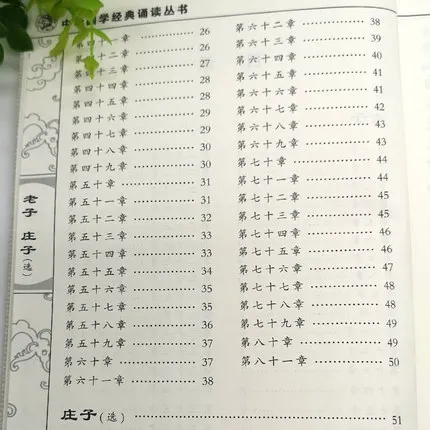 学经典诵读丛书
老子 庄子(选)
第四十一章 …… 26
第四十二章 …… 26
第四十三章 …… 27
第四十四章 …… 28
第四十五章 …… 28
第四十六章 …… 29
第四十七章 …… 29
第四十八章 …… 30
第四十九章 …… 30
第五十章 …… 31
第五十一章 …… 31
第五十二章 …… 32
第五十三章 …… 33
第五十四章 …… 33
第五十五章 …… 34
第五十六章 …… 35
第五十七章 …… 35
第五十八章 …… 36
第五十九章 …… 37
第六十章 …… 37
第六十一章 …… 38
第六十二章 …… 38
第六十三章 …… 39
第六十四章 …… 40
第六十五章 …… 41
第六十六章 …… 41
第六十七章 …… 42
第六十八章 …… 43
第六十九章 …… 43
第七十章 …… 44
第七十一章 …… 44
第七十二章 …… 45
第七十三章 …… 45
第七十四章 …… 46
第七十五章 …… 46
第七十六章 …… 47
第七十七章 …… 48
第七十八章 …… 48
第七十九章 …… 49
第八十章 …… 49
第八十一章 …… 50
庄子(选) …… 51